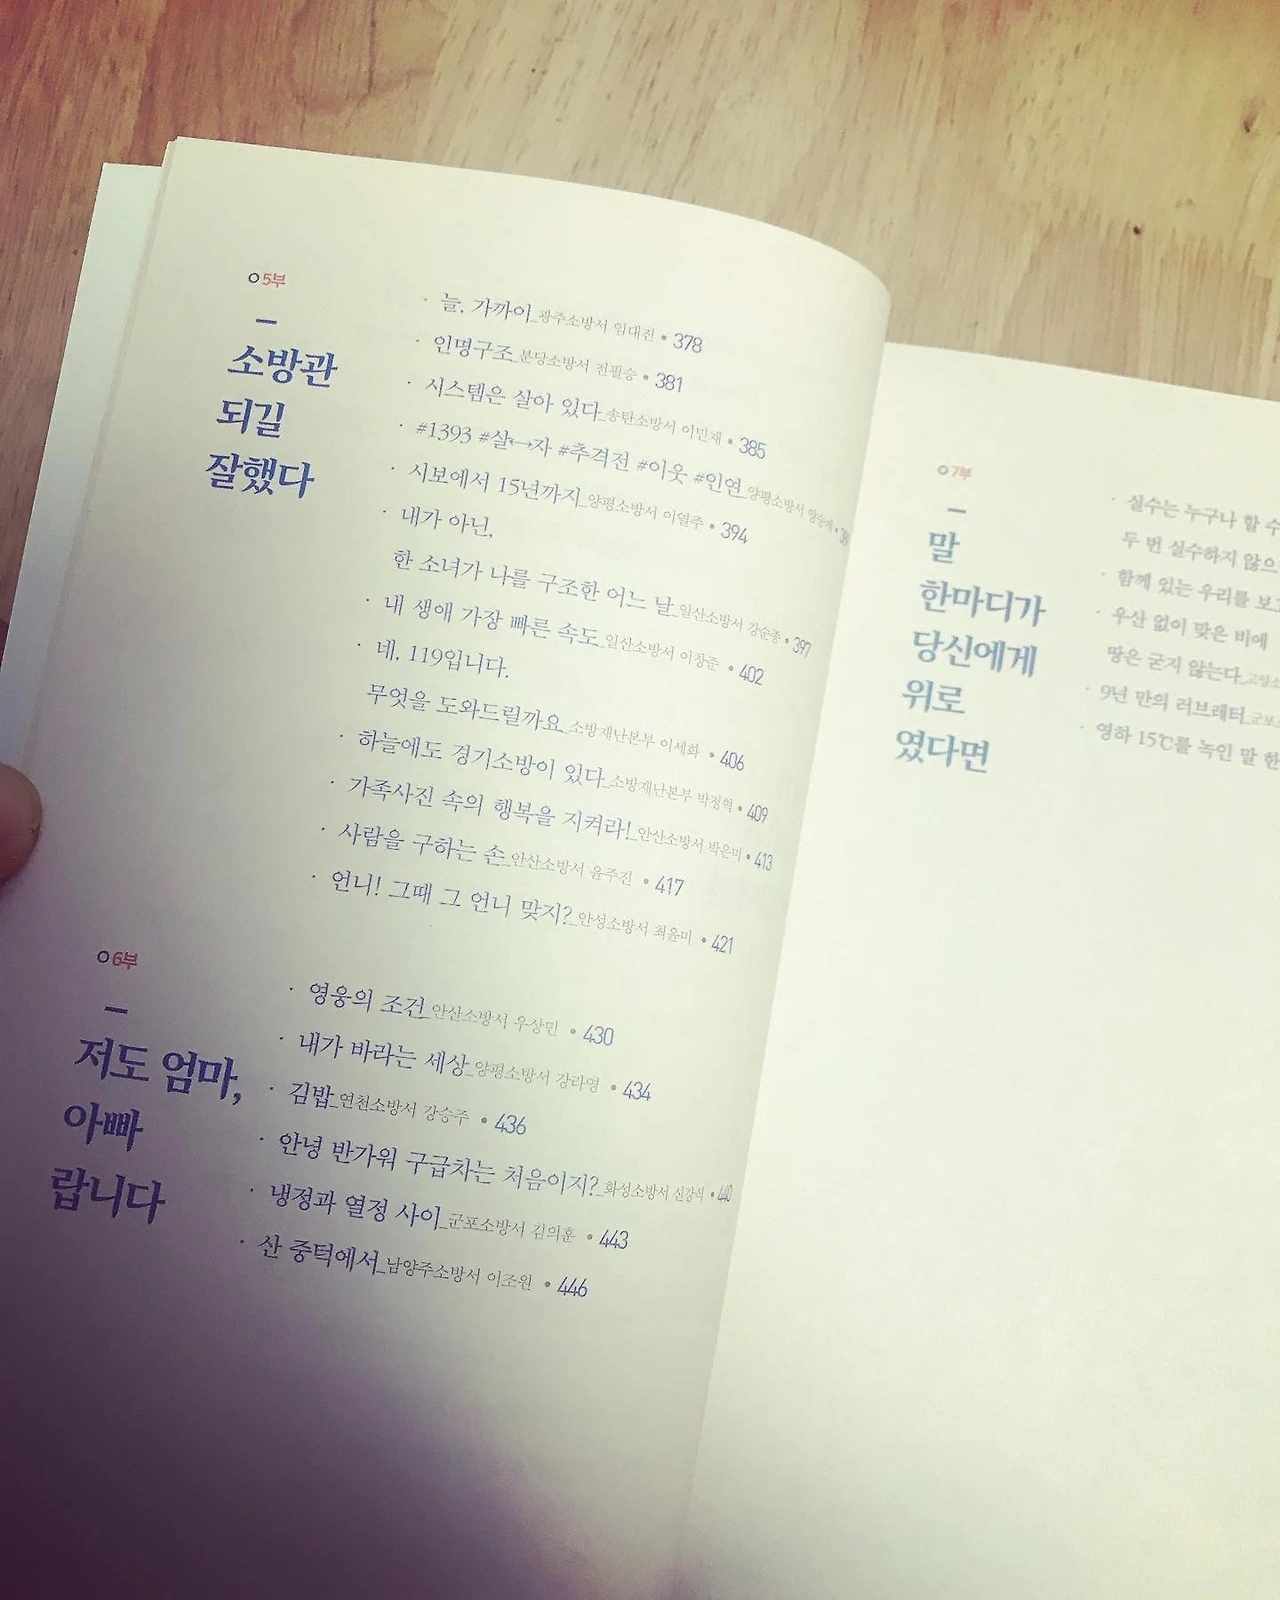 5부
소방관
되길
잘했다
· 늘, 가까이_광주소방서 임대진 • 378
· 인명구조_분당소방서 전필승 • 381
· 시스템은 살아 있다_송탄소방서 이민재 • 385
· #1393 #살↔자 #추격전 #이웃 #인연_양평소방서
· 시보에서 15년까지_양평소방서 이열주 • 394
· 내가 아닌,
한 소녀가 나를 구조한 어느 날_일산소방서 강순종 • 397
· 내 생애 가장 빠른 속도_일산소방서 이창준 • 402
· 네, 119입니다.
무엇을 도와드릴까요_소방재난본부 이세화 • 406
· 하늘에도 경기소방이 있다_소방재난본부 박정혁 • 409
· 가족사진 속의 행복을 지켜라!_안산소방서 박은미 • 413
· 사람을 구하는 손_안산소방서 윤주진 • 417
· 언니! 그때 그 언니 맞지?_안성소방서 최윤미 • 421
6부
저도 엄마,
아빠
랍니다
· 영웅의 조건_안산소방서 우상민 • 430
· 내가 바라는 세상_양평소방서 강라영 • 434
· 김밥_연천소방서 강승주 • 436
· 안녕 반가워 구급차는 처음이지?_화성소방서 신강식 • 440
· 냉정과 열정 사이_군포소방서 김의훈 • 443
· 산 중턱에서_남양주소방서 이조원 • 446
7부
말
한마디가
당신에게
위로
였다면
· 실수는 누구나 할 수
두 번 실수하지 않으
· 함께 있는 우리를 보
· 우산 없이 맞은 비에
땅은 굳지 않는다_고양소
· 9년 만의 러브레터_군포
· 영하 15℃를 녹인 말 한